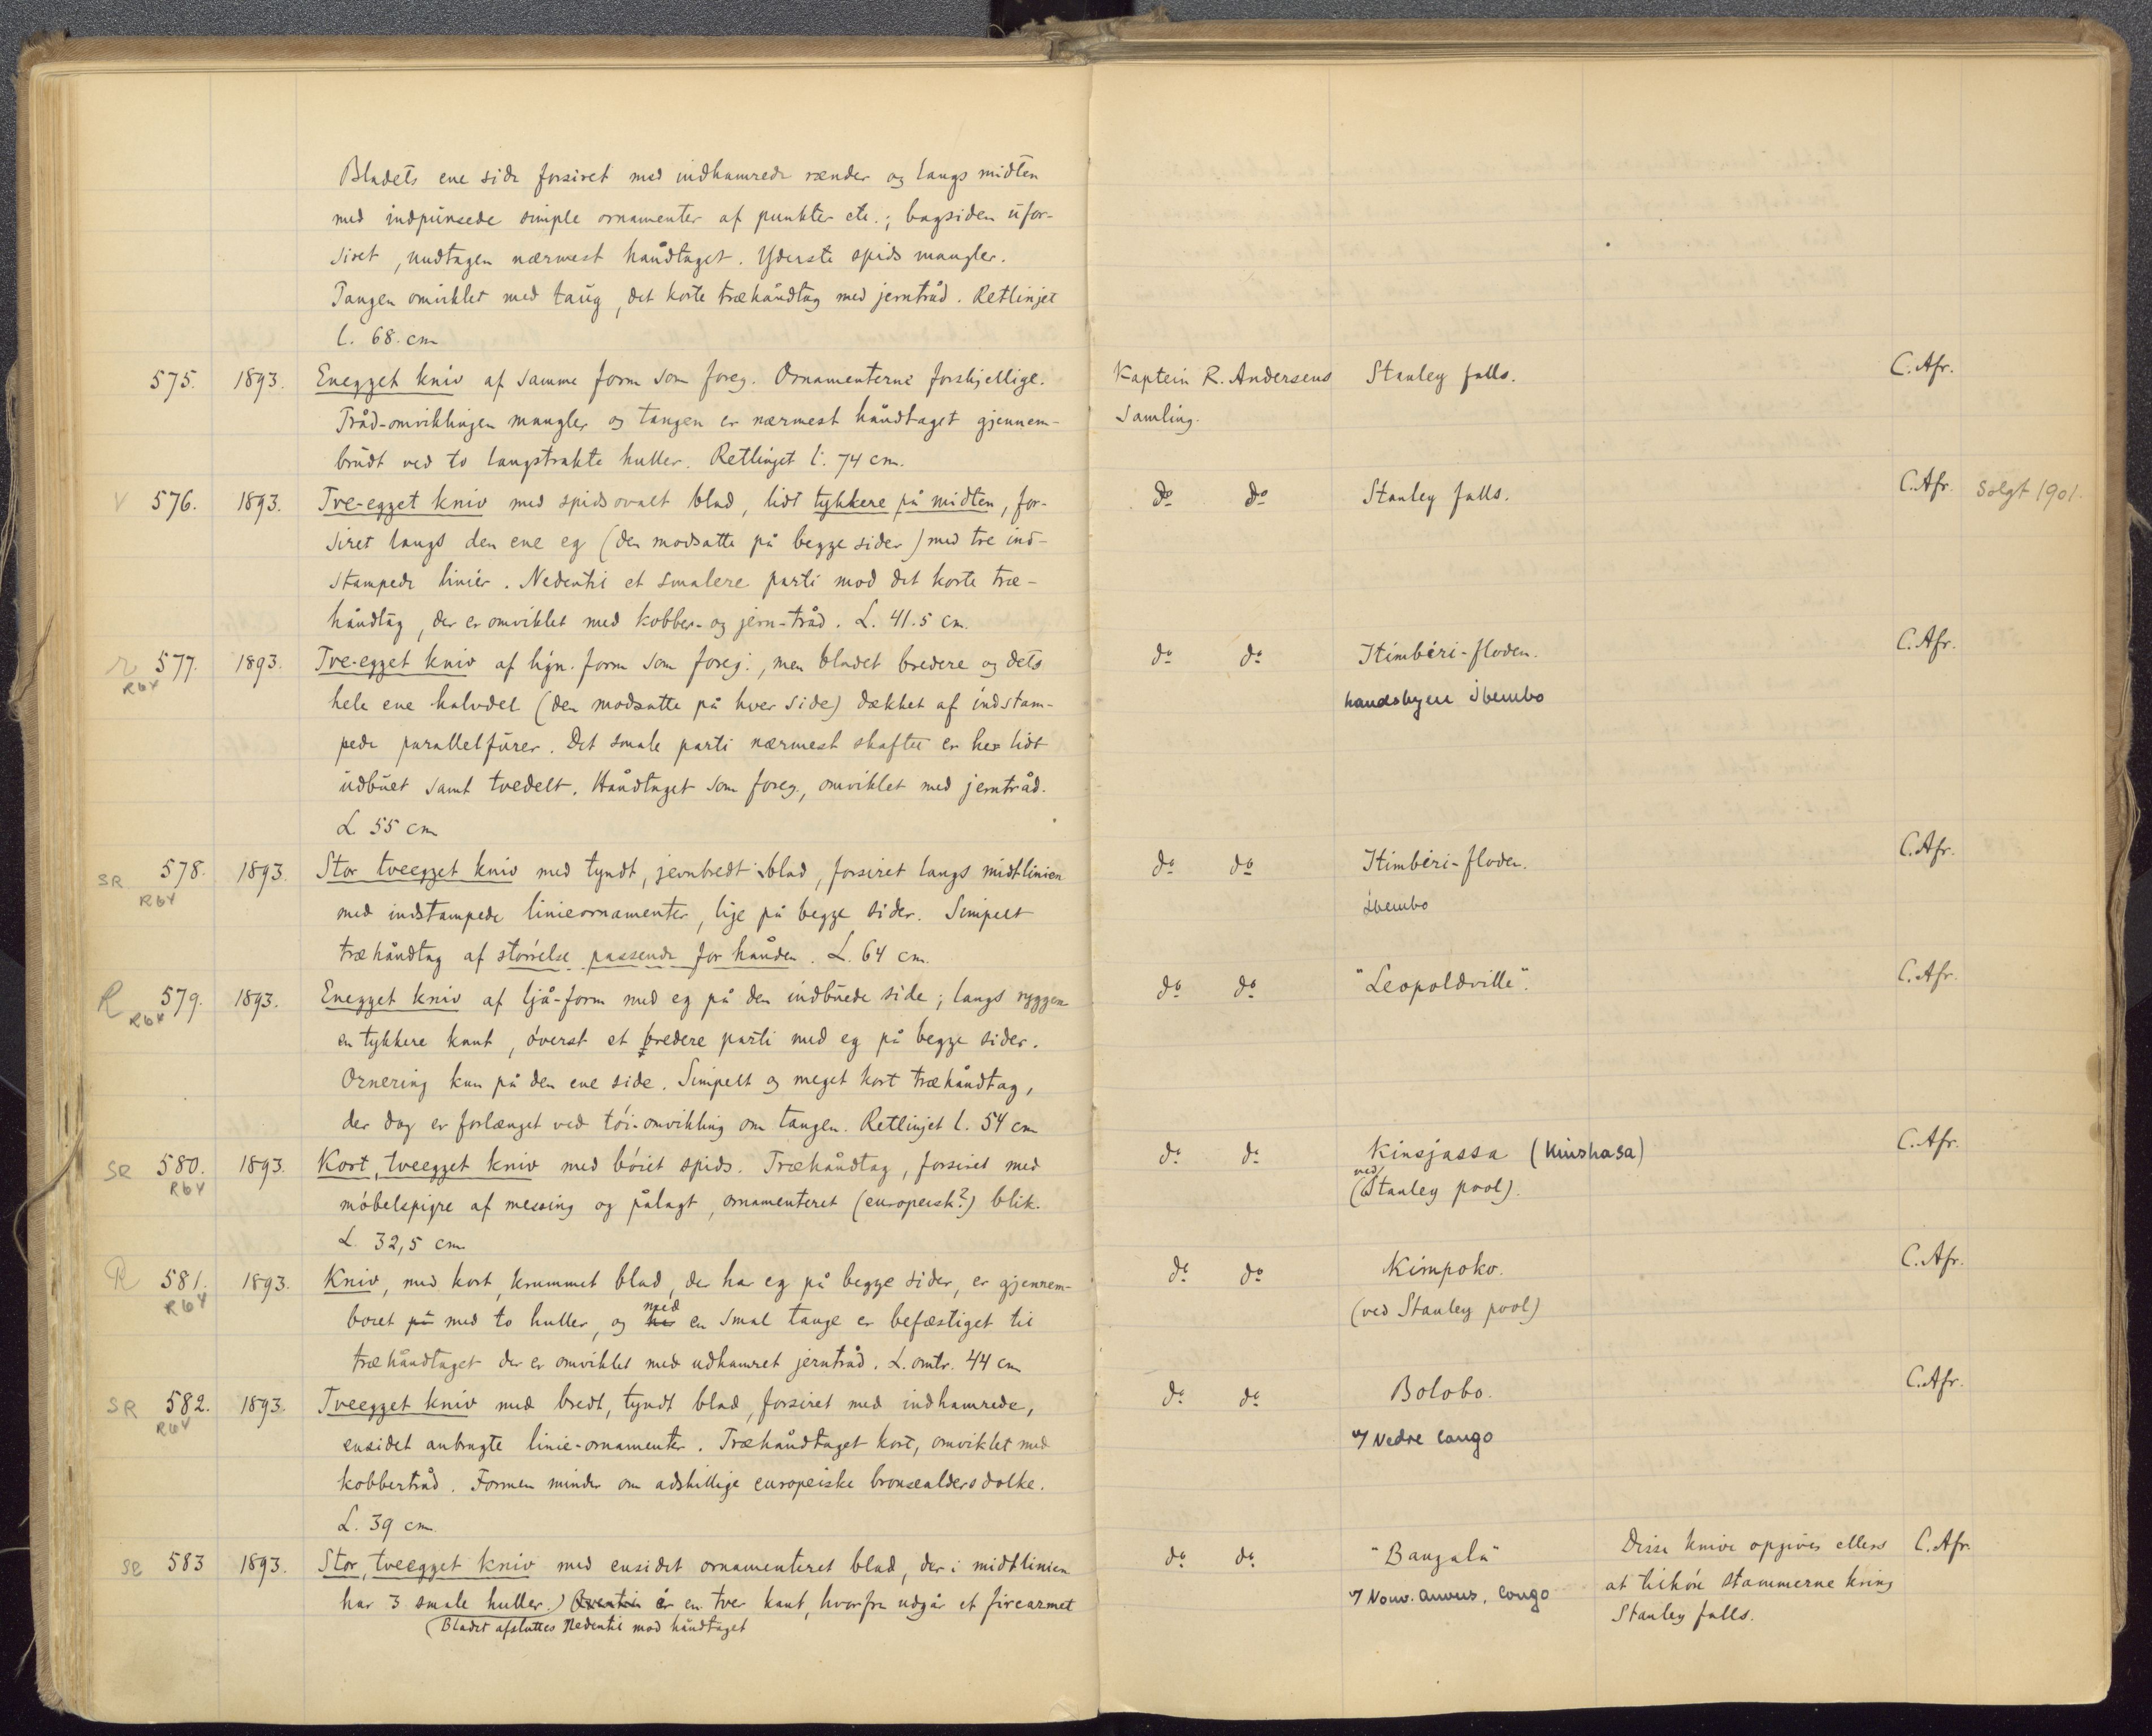 Bladets ene side forsiret med indhamrede render og langs midten
med indpunsede simple ornamenter af punkter etc.; bagsiden ufor-
siret, undtagen nærmest håndtaget. Yderste spids mangler.
Tangen omviklet med taug, det korte træhåndtag med jerntråd. Retlinjet
l. 68. cm
575. 1893. Enegget kniv af samme form som foreg. Ornamenterne forskjellige. Kaptein R. Andersens Stanley falls. C. Afr.
Tråd-omviklingen mangler og tangen er nærmest håndtaget gjennem- Samling.
brudt ved to langstrakte huller. Retlinjet l. 74 cm.
V 576. 1893. Tve-egget kniv med spidsovalt blad, lidt tykkere på midten, for- do do Stanley falls. C. Afr. Solgt 1901.
siret langs den ene eg (den modsatte på begge sider) med tre ind-
stampede linier. Nedentil et smalere parti mod det korte træ-
håndtag, der er omviklet med kobber- og jern-tråd. L. 41.5 cm.
r 577. 1893. Tve-egget kniv af lign. form som foreg., men bladet bredere og dets do do Itimbiri-floden. C. Afr.
R6Y hele ene halvdel (den modsatte på hver side) dækket af indstam- handsbyen Ibembo
pede parallelfurer. Det smale parti nærmest skaftet er her lidt
udbuet samt tvedelt. Håndtaget som foreg., omviklet med jerntråd.
L. 55 cm
SR 578. 1893. Stor tveegget kniv med tyndt, jevnbredt blad, forsiret langs midtlinien do do Itimbiri-floden. C. Afr.
R6Y med indstampede linieornamenter, lige på begge sider. Simpelt Ibembo
træhåndtag af størrelse passende for hånden. L. 64 cm.
R 579. 1893. Enegget kniv af ljå-form med eg på den indbuede side; langs ryggen do do "Leopoldville". C. Afr.
R6Y en tykkere kant, øverst et bredere parti med eg på begge sider.
Ornering kun på den ene side. Simpelt og meget kort træhåndtag,
der dog er forlænget ved tøi-omvikling om tangen. Retlinjet l. 54 cm
SR 580. 1893. Kort, tveegget kniv med bøiet spids. Træhåndtag, forsiret med do do Kinsjassa (Kinshasa) C. Afr.
R6Y møbelspigre af messing og pålagt, ornamenteret (europeisk?) blik. (ved Stanley pool).
L. 32,5 cm.
R 581. 1893. Kniv, med kort, krummet blad, der har eg på begge sider, er gjennem- do do Kimpoko. C. Afr.
R6Y boret på med to huller, og har med en smal tange er befæstiget til (ved Stanley pool)
træhåndtaget der er omviklet med udhamret jerntråd. L. omtr. 44 cm
SR 582. 1893. Tveegget kniv med bredt, tyndt blad, forsiret med indhamrede, do do Bolobo. C. Afr.
R6Y ensidet anbragte linie-ornamenter. Træhåndtaget kort, omviklet med Nedre Congo
kobbertråd. Formen minder om adskillige europeiske bronsealdersdolke.
L. 39 cm.
SR 583 1893. Stor, tveegget kniv med ensidet ornamenteret blad, der i midtlinien do do "Bangala" Disse knive opgives ellers C. Afr.
har 3 smale huller. er en tver kant, hvorfra udgår et firearmet Nouv. Anvers, Congo at tilhøre stammerne kring
(Bladet afsluttes nedentil mod håndtaget Stanley falls.